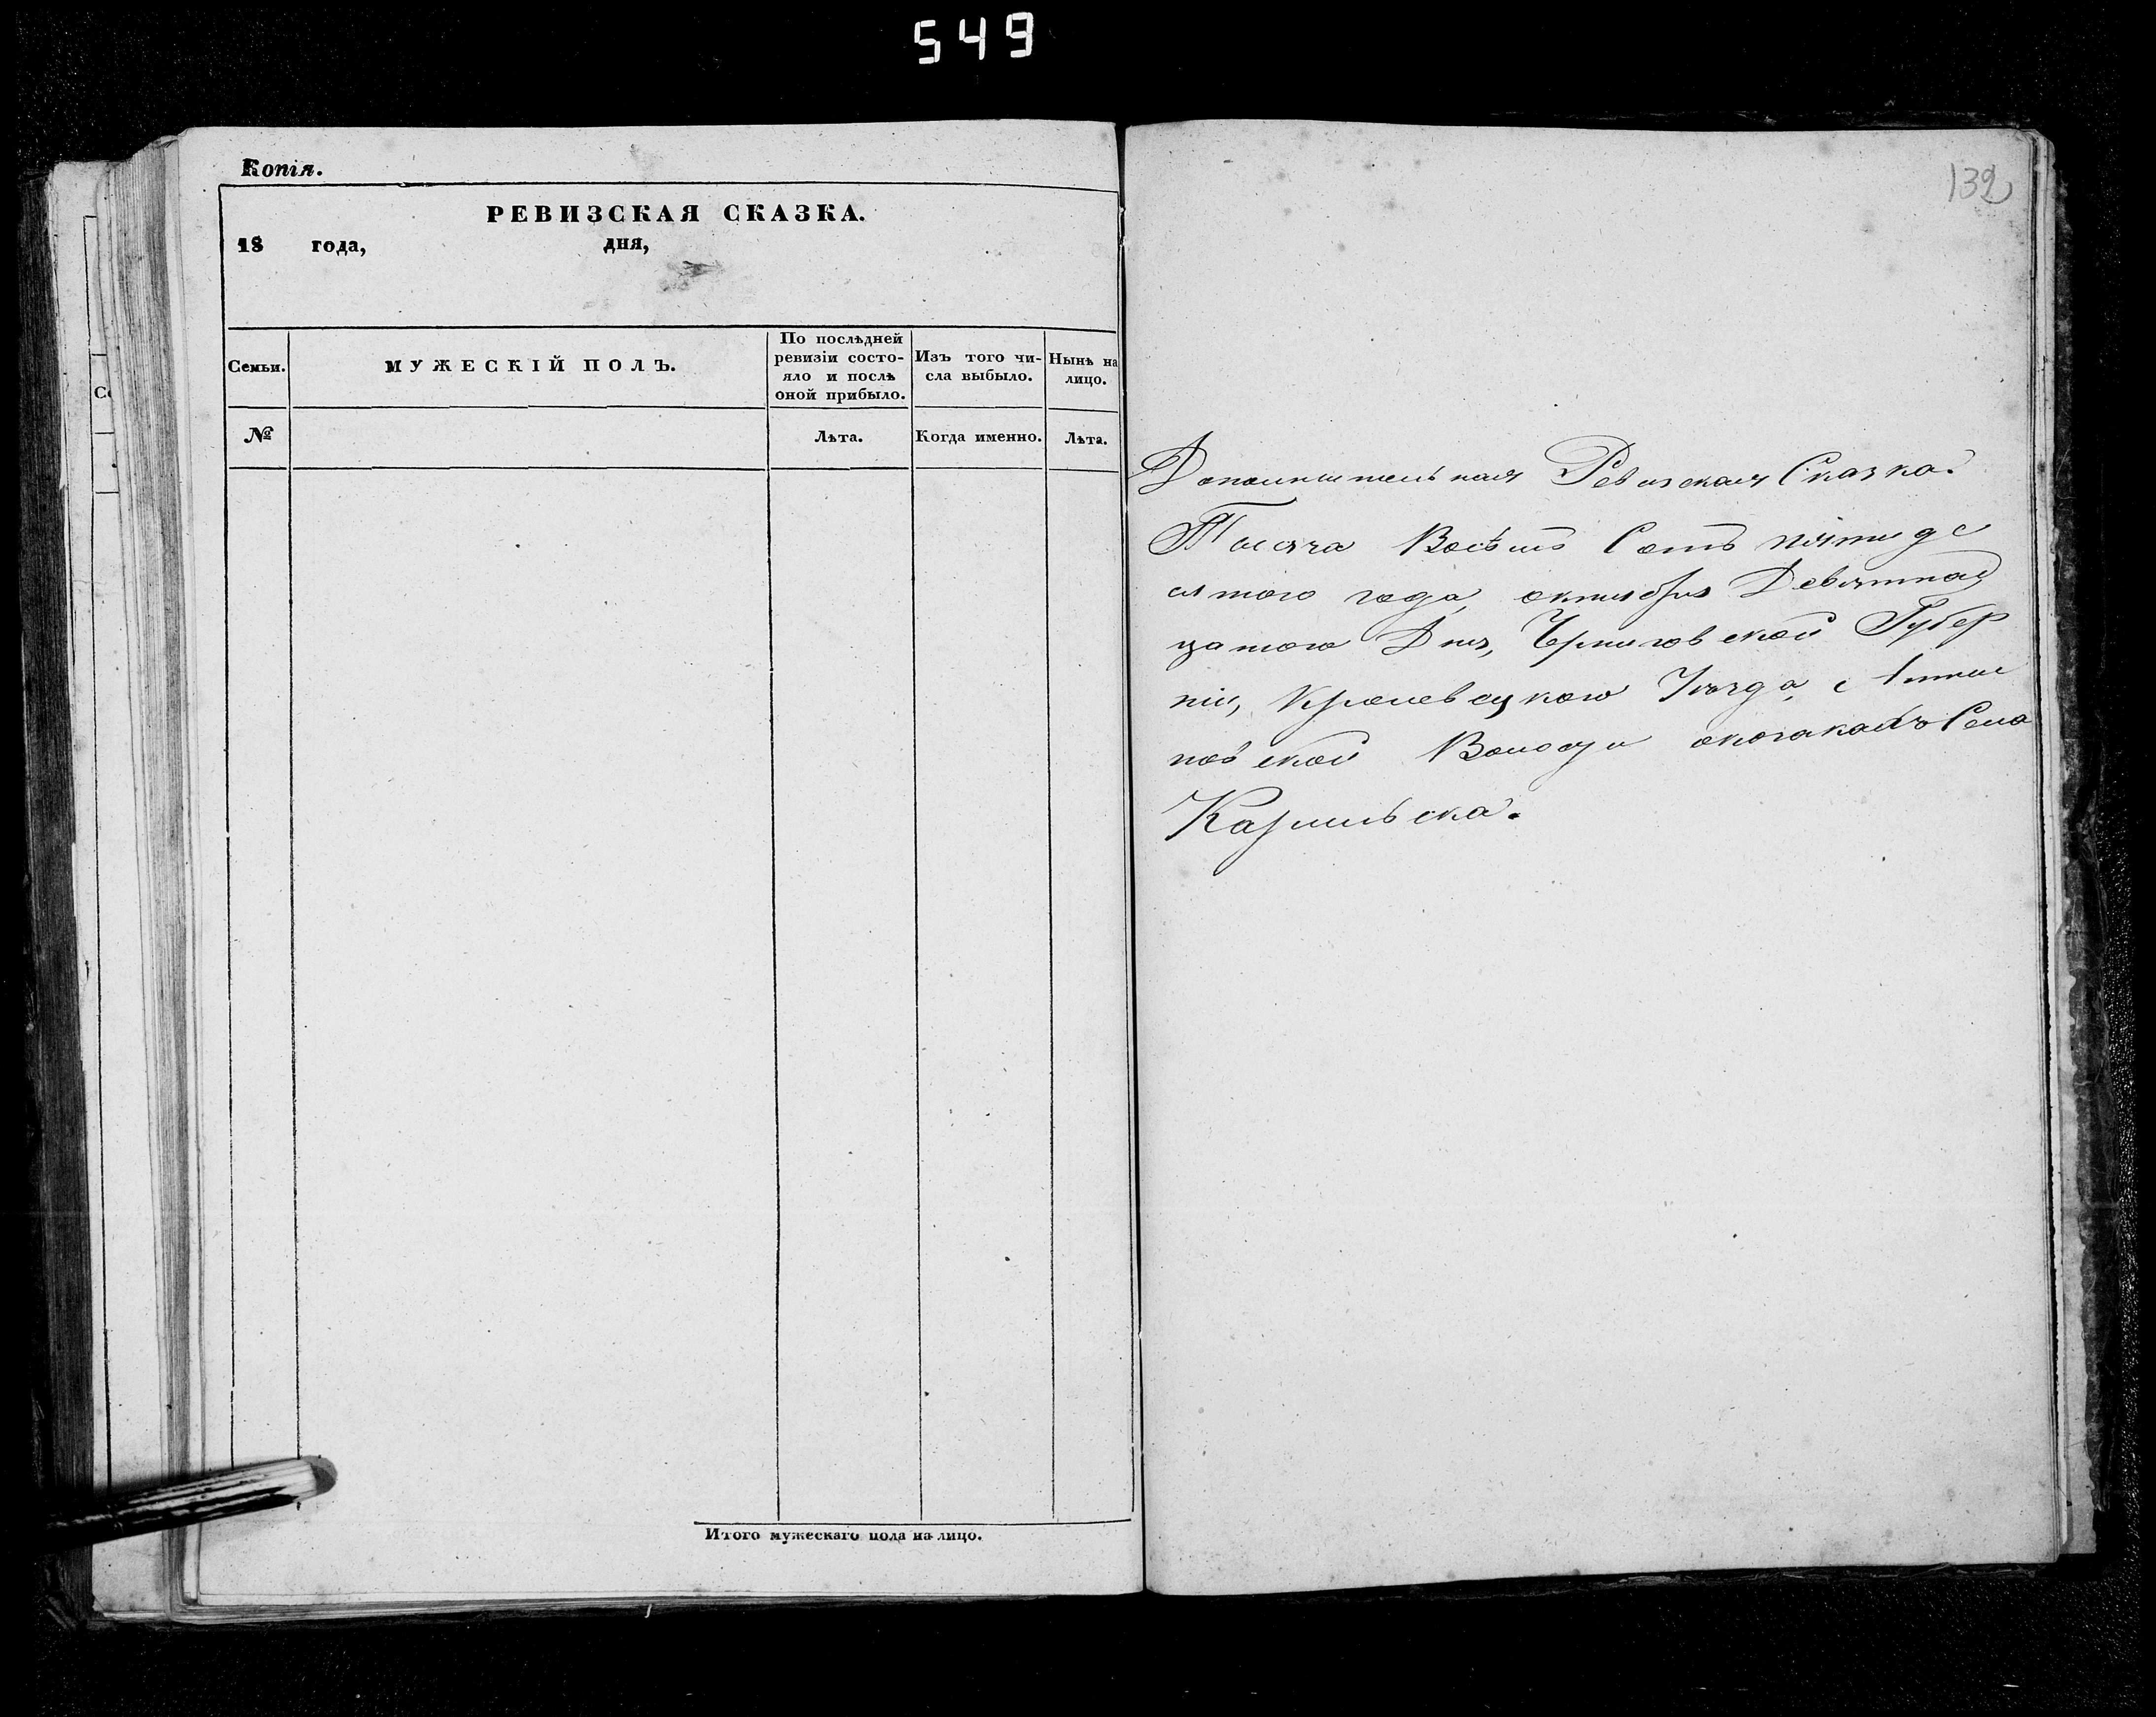 549
Копія.
РЕВИЗСКАЯ СКАЗКА.
18 года, дня,
Семьи.
МУЖЕСКІЙ ПОЛЪ.
По послѣдней
ревизіи состо-
яло и послѣ
оной прибыло.
Изъ того чи-
сла выбыло.
Нынѣ на
лицо.
№
Лѣта.
Когда именно.
Лѣта.
Итого мужескаго пола на-лицо.
132
Дополнительная Ревизская Сказка.
Тысяча Восѣмъ Сотъ пятиде
сятого года, октября Девятнад
цатого Дня, Черниговской Губер
ніи, Кролевецкого Уѣзда,
новской Волости казакахъ Села
Карыльска.